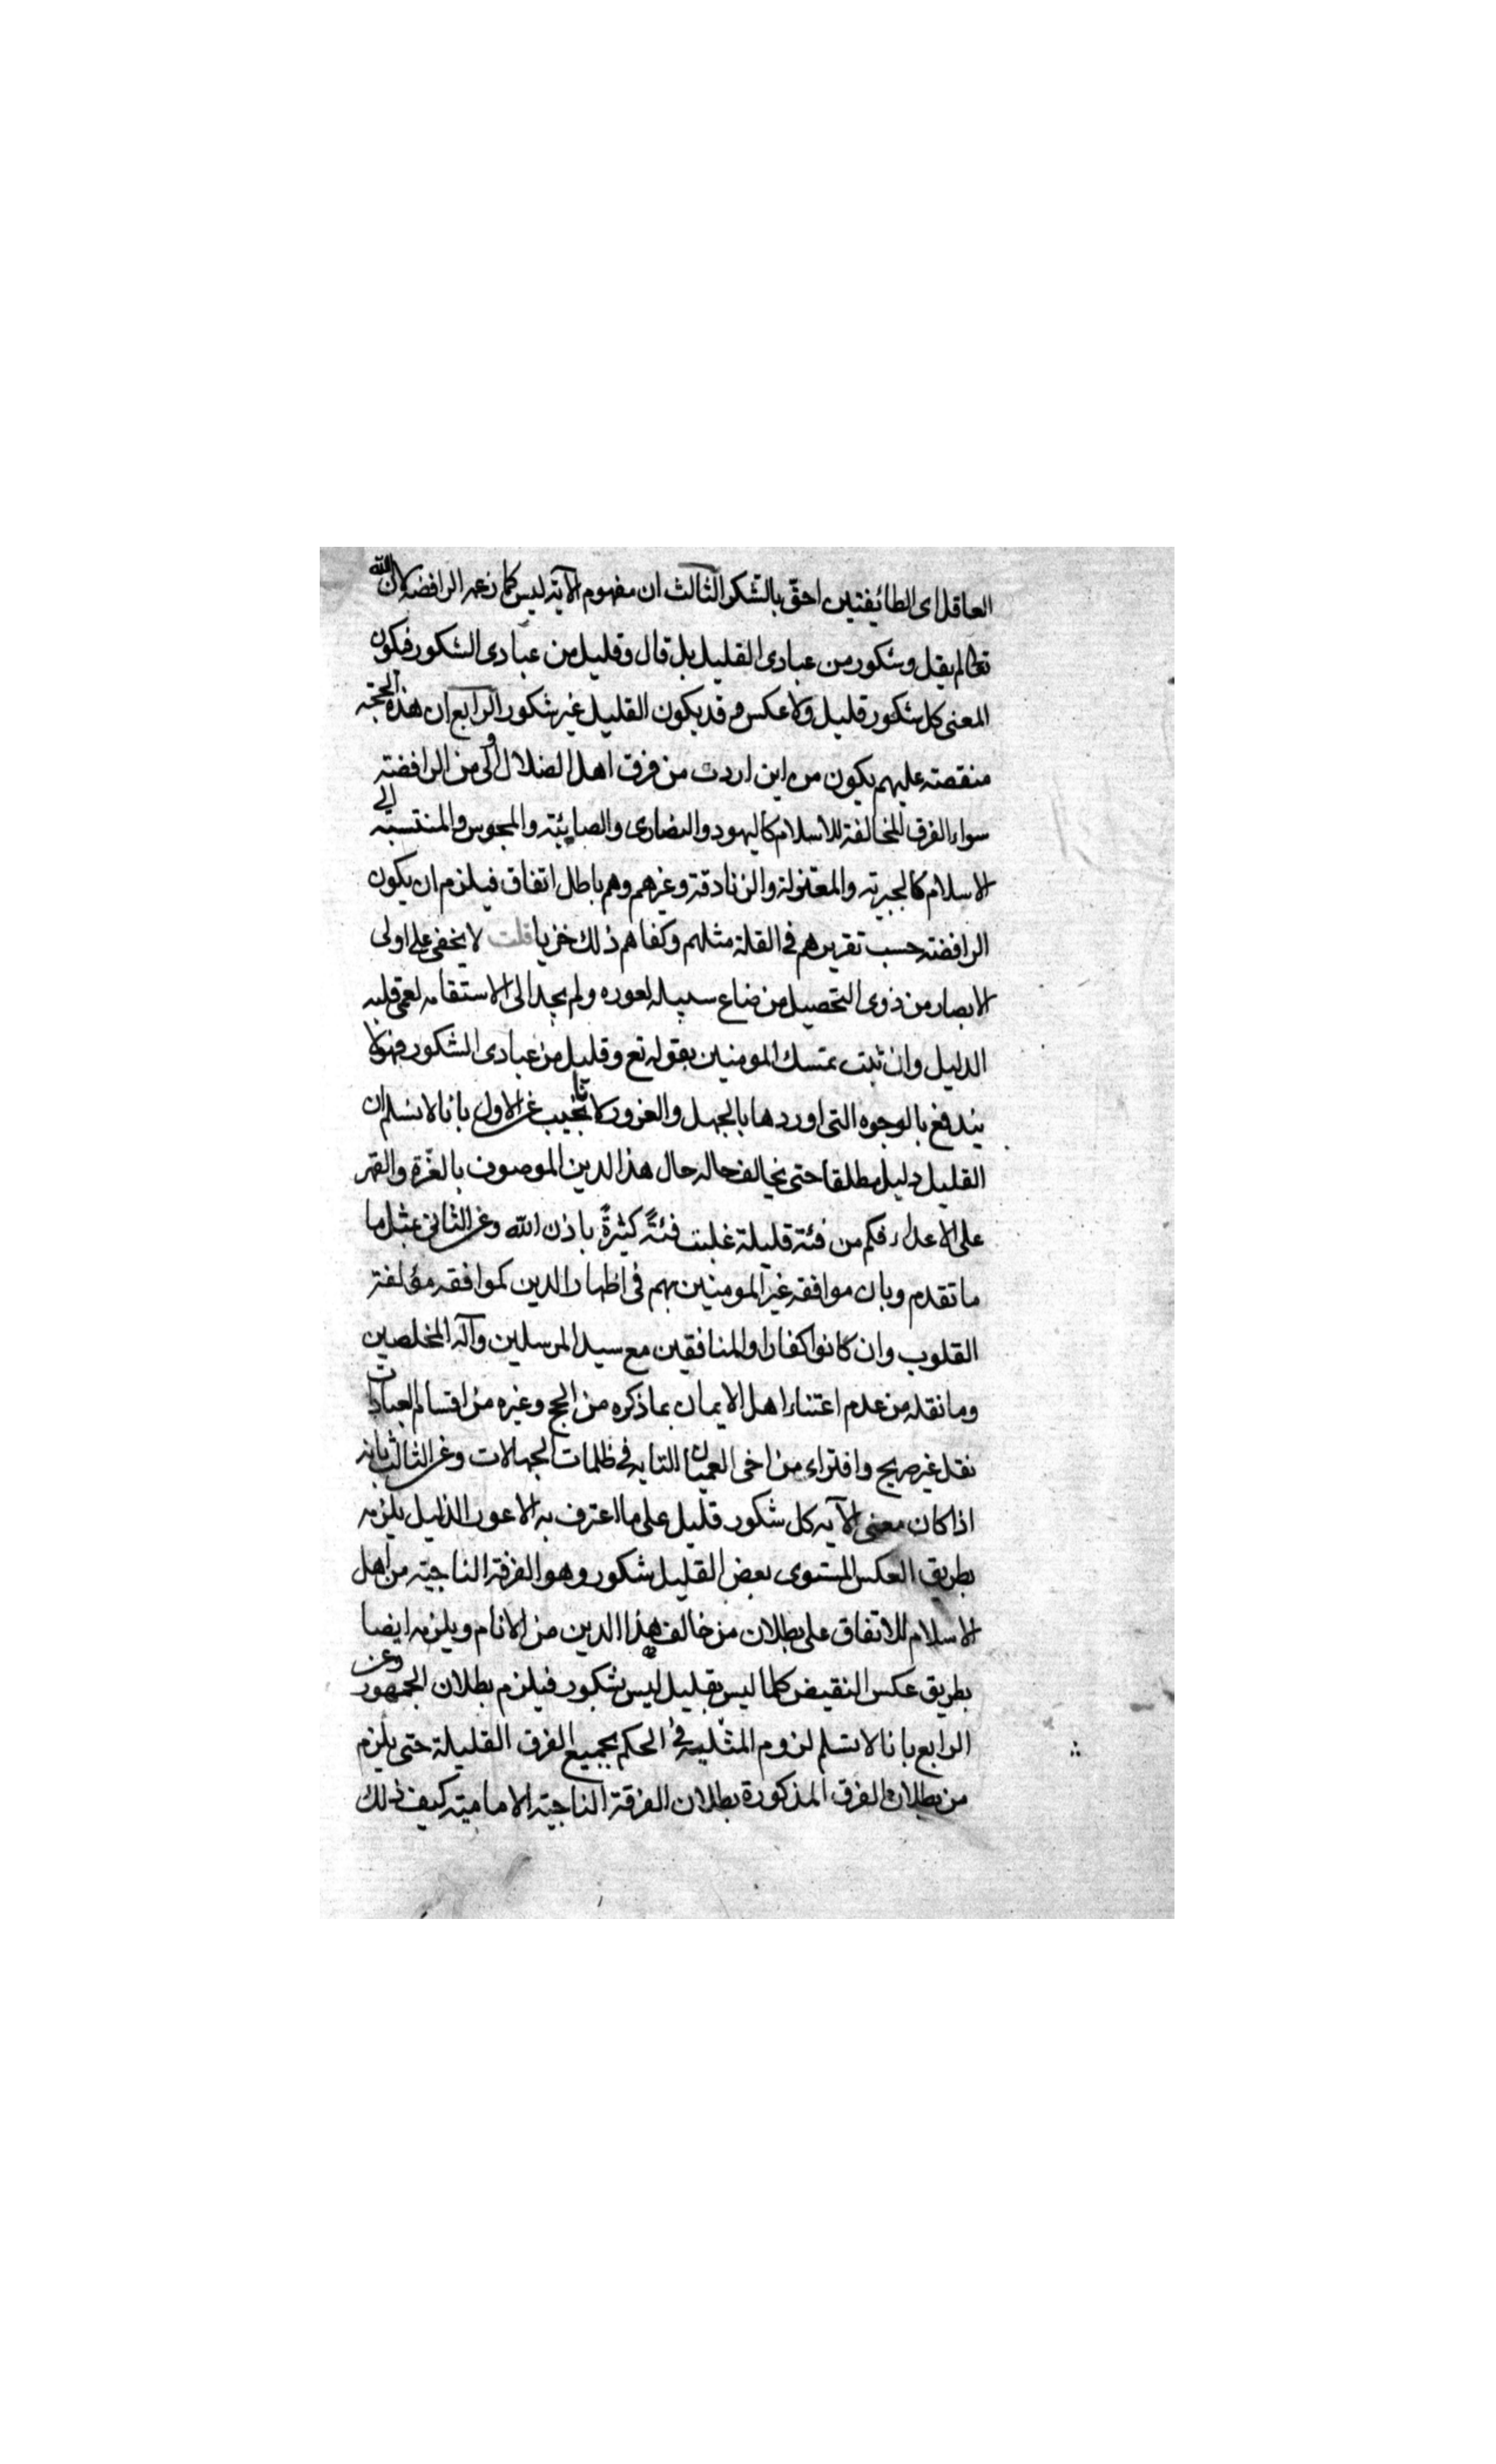 العاقل اى الطائيفتين احقّ بالشكر الثالث ان مفهوم الآية ليس كما زعمه الرافضه لان الله
تعالى لم يقل وشكور من عبادى القليل بل قال وقليل من عبادى الشكور فكون
المعنى كل شكور قليل ولا عكس و قد يكون القليل غير شكور الرابع ان هذه الحجة
منقصته عليهم يكون من اين اردت من فرق اهل الضلال اولى من الرافضته
سواء الفرق المخالفة للاسلام كاليهود والنصارى والصابئية والمجوس والمنتسبة الى
الاسلام كالجبرية والمعتزلة والزنادقة وغيرهم وهم باطل اتفاق فيلزم ان يكون
الرافضته حسب تقريرهم فى القلة مثلهم وكفاهم ذلك خزيا قلت لا يخفى على اولى
الابصار من ذوى التحصيل من ضاع سبيله لعوره ولم يجد الى الاستقامه لعمى قلبه
الدليل وان ثبت تمسك المومنين بقوله تع وقليل من عبادى الشكور فهولا
يندفع بالوجوه التى اوردها بالجهل والغرور لانا نجيب عن الاول بانا لا نسلم ان
القليل دليل مطلقا حتى يخالف حاله حال هذا الدين الموصوف بالعزّة والقهر
على الاعداء فكم من فئة قليلة غلبت فئةً كثيرةً باذن الله وعن الثانى بمثل ما
ما تقدم وبان موافقه غير المومنين بهم فى اظهار الدين كموافقه مؤلفة
القلوب وان كانوا كفارا والمنافقين مع سيد المرسلين وآله المخلصين
وما نقله من عدم اعتناء اهل الايمان بما ذكره من الحج وغيره من اقسام العبادات
نقل غير صريح وافتراء من اخى العميان التايه فى ظلمات الجهالات وعن الثالث بانه
اذا كان معنى الآيه كل شكور قليل على ما اعترف به الاعور الذليل يلزمه
بطريق العكس المستوى بعض القليل شكور وهو الفرقة الناجية من اهل
الاسلام للاتفاق على بطلان من خالف هذا الدين من الانام ويلزمه ايضا
بطريق عكس النقيض كلما ليس بقليل ليس بشكور فيلزم بطلان الجمهور وعن
الرابع بانا لا نسلم لزوم المثليه فى الحكم بجميع الفرق القليلة حتى يلزم
من بطلان الفرق المذكورة بطلان الفرقة الناجية الامامية كيف ذلك